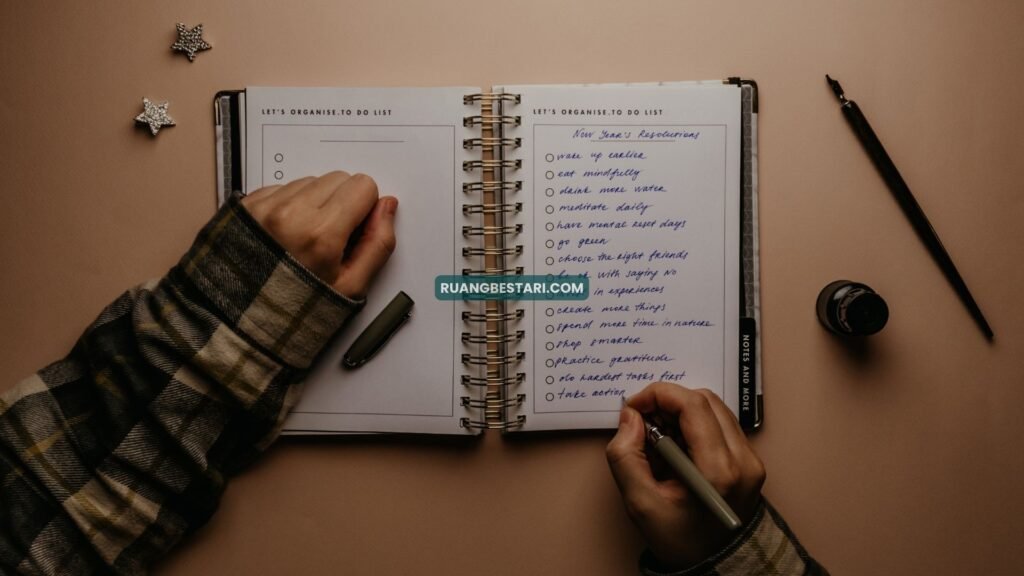 LET'S ORGANISE.TO DO LIST
LET'S ORGANISE.TO DO LIST
New Year's Resolutions
wake up earlier
eat mindfully
drink more water
meditate daily
have mental reset days
go green
choose the right friends
with saying No
RUANGBESTARI.COM
in experiences
create more things
spend more time in nature
shop smarter
practice gratitude
do hardest tasks first
take action
NOTES AND MORE